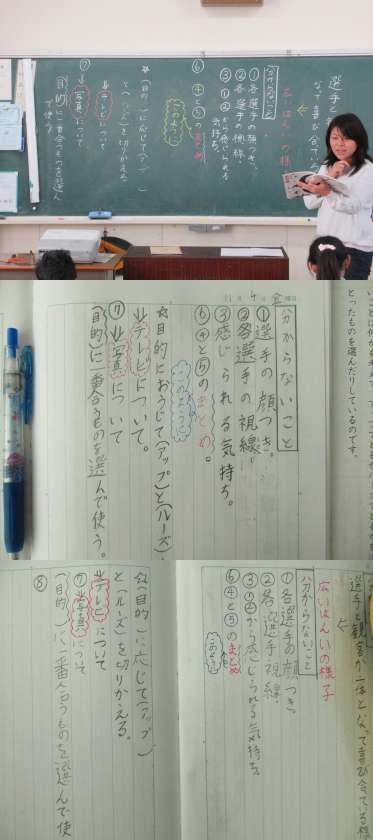 選手と
なって喜び合ている
広いはんいの様
分からないこと
①各選手の顔つき。
②各選手の視線。
③①②から感じられる
気持ち。
⑥④と⑤のまとめ
このように
☆(目的)に応じて(アップ)
と(ルーズ)を切りかえる。
↓テレビについて
⑦↓写真について
(目的)に一番合うものを選ん
で使う
とったものを選んだりしているのです。
11月4日金曜日
分からないこと
①選手の顔つき。
②各選手の視線。
③感じられる気持ち。
⑥④と⑤のまとめ。
このように
☆目的におうじて(アップ)と(ルーズ)
↓テレビについて。
⑦↓写真について
(目的)に一番合うものを選んで使う。
選手と観客が一体となって喜び合ている様
広いはんいの様子
分からないこと
①各選手の顔つき。
②各選手視線。
③①②から感じられる気持ち
⑥④と⑤のまとめ
このように
☆(目的)に応じて(アップ)
と(ルーズ)を切りかえる。
↓テレビについて
⑦↓写真について
(目的)に一番合うものを選んで使
⑧